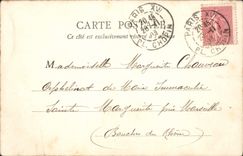 CARTE POSTALE
Ce côté est exclusivement réservé
PARIS XV
PL. CHOPIN
PARIS XV
PL. CHOPIN
Mademoiselle Marguerite Chauveau
Orphelinat de Marie Immaculée
Sainte Marguerite près Marseille
Bouches du Rhône